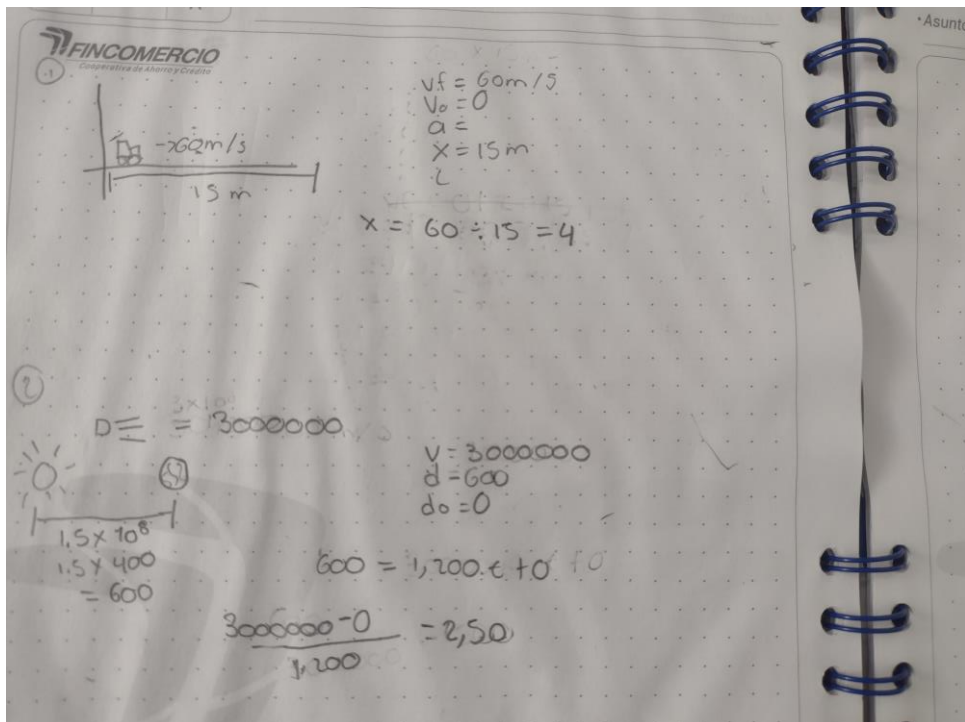 ·Asunto
FINCOMERCIO
Cooperativa de Ahorro y Crédito
1
vf = 60m/s
Vo = 0
a =
x = 15m
->60m/s
15 m
x = 60 ÷ 15 = 4
2
D = = 3000000
V = 3000000
d = 600
do = 0
1.5 × 10⁸
1.5 × 400
= 600
600 = 1,200.t + 0
3000000 - 0
1,200
= 2,50